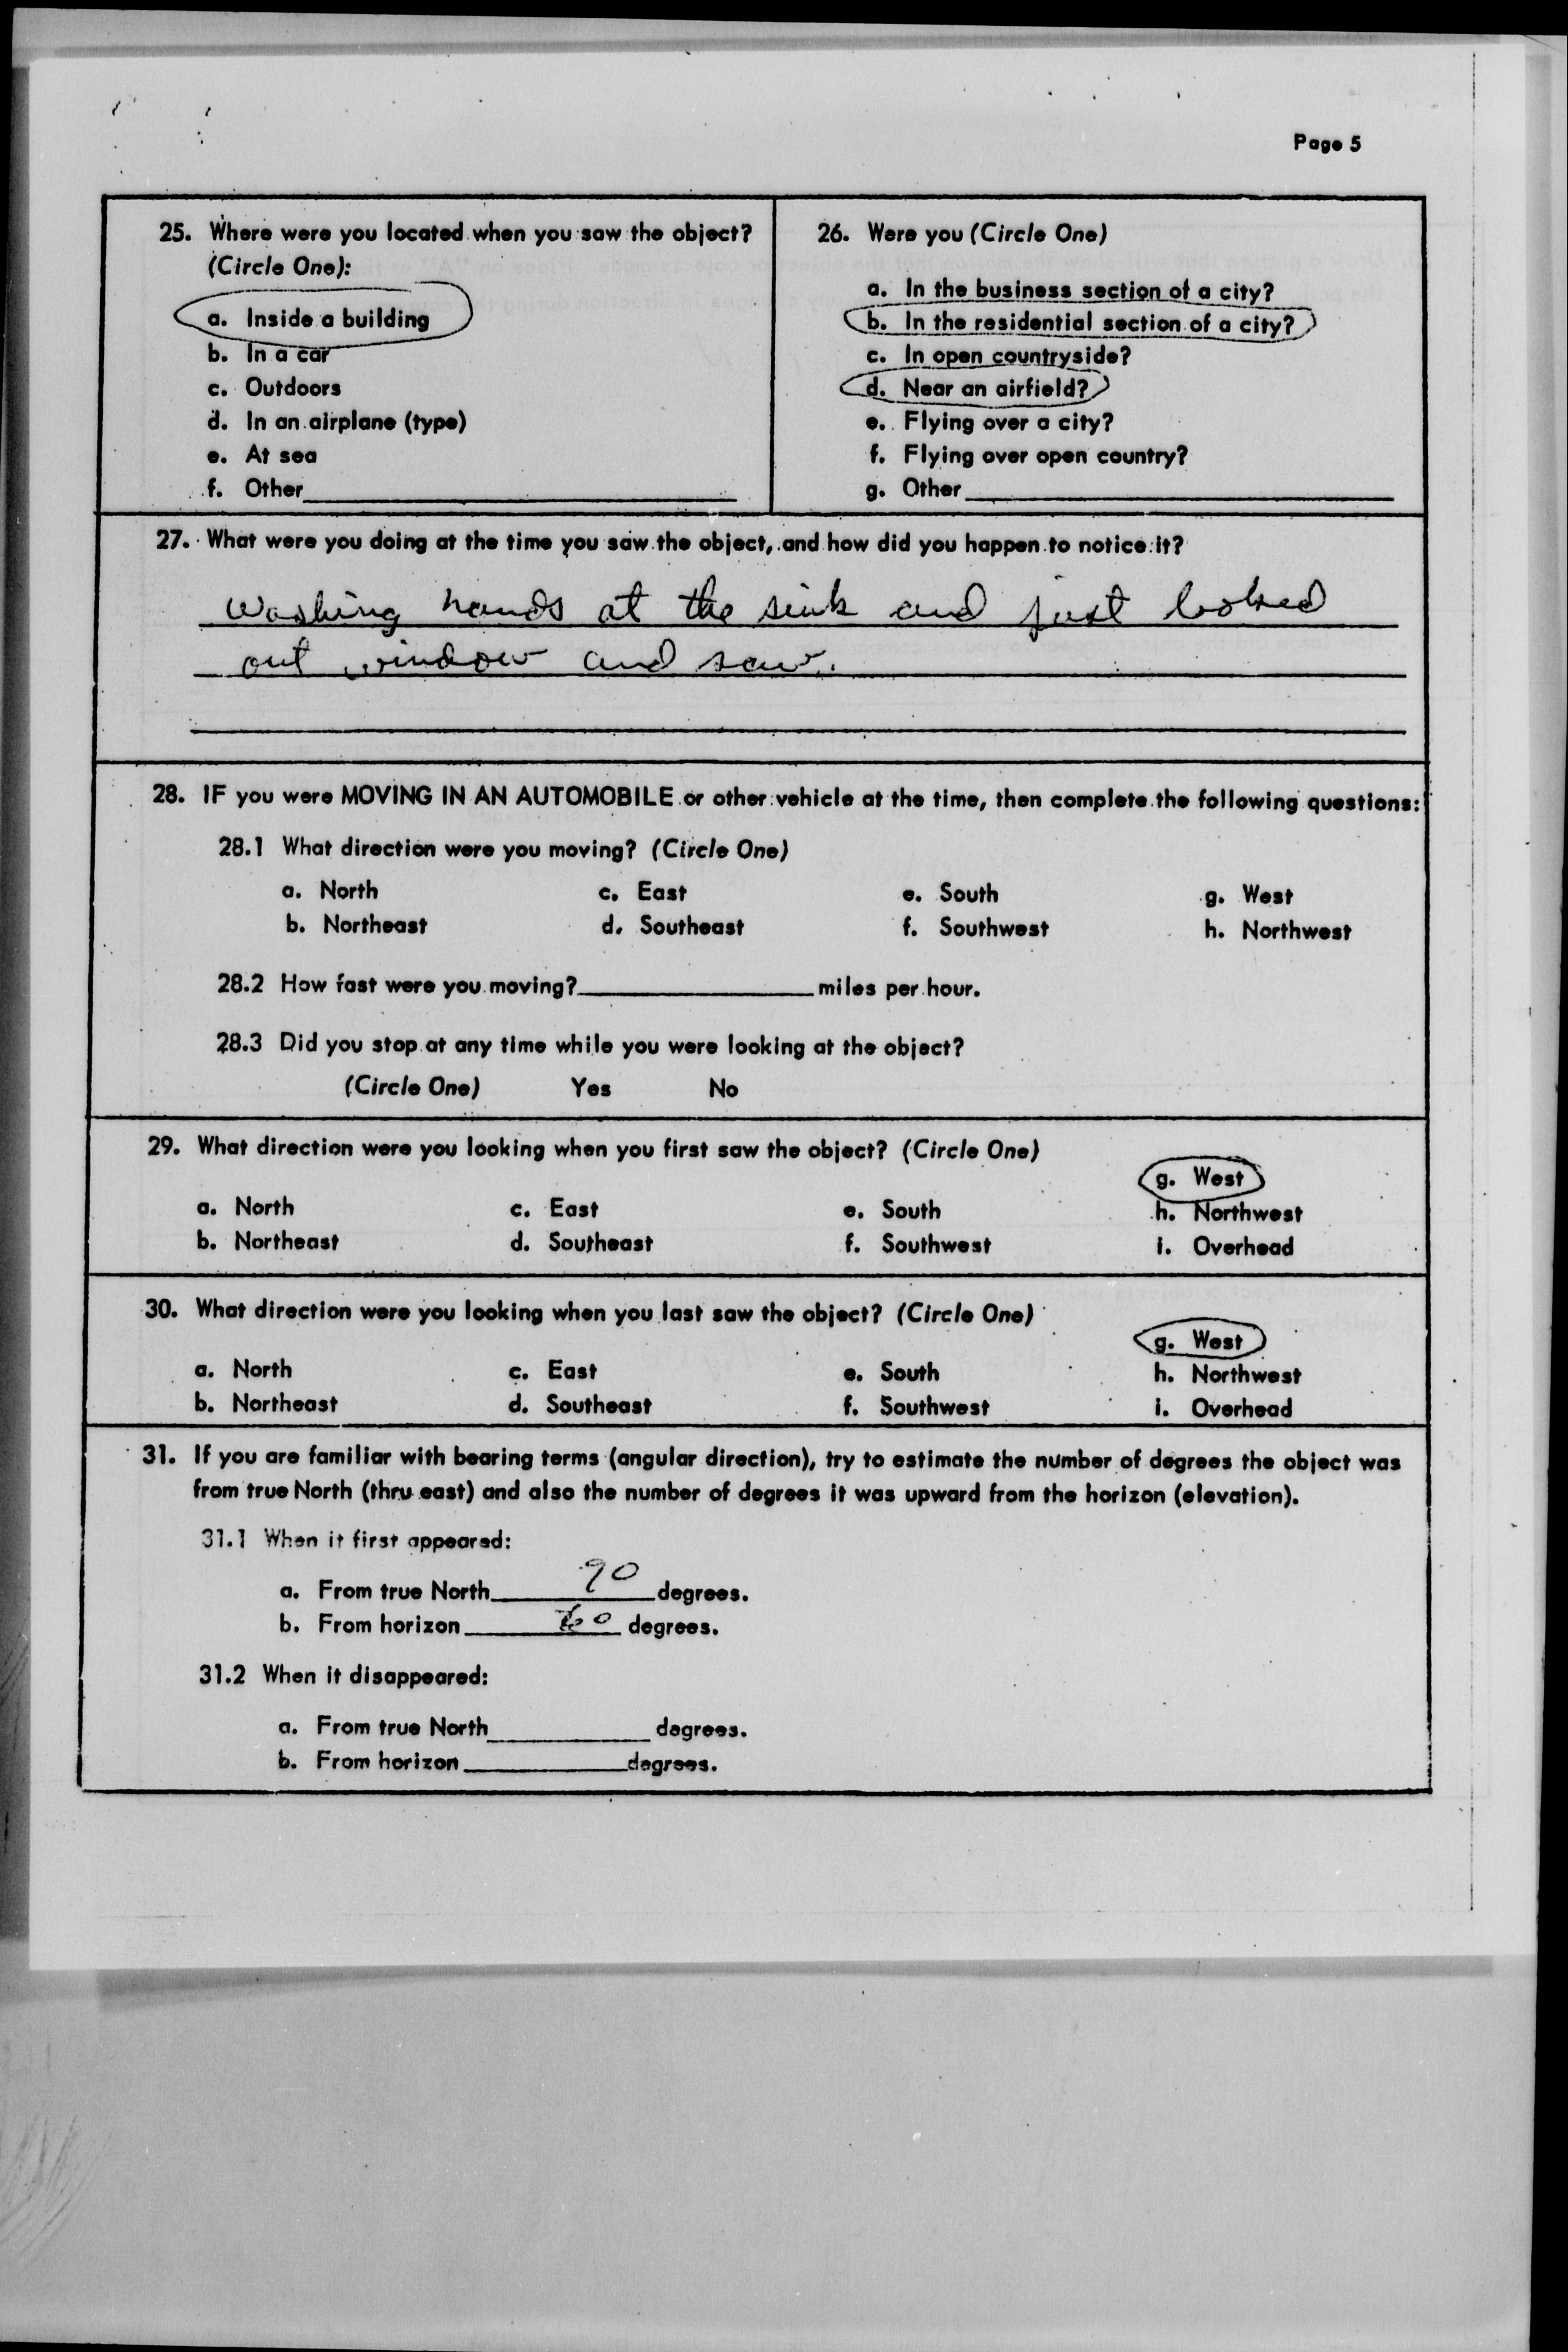 Page 5
25. Where were you located when you saw the object?
(Circle One):
a. Inside a building
b. In a car
c. Outdoors
d. In an airplane (type)
e. At sea
f. Other
26. Were you (Circle One)
a. In the business section of a city?
b. In the residential section of a city?
c. In open countryside?
d. Near an airfield?
e. Flying over a city?
f. Flying over open country?
g. Other
27. What were you doing at the time you saw the object, and how did you happen to notice it?
washing hands at the sink and just looked
out window and saw.
28. IF you were MOVING IN AN AUTOMOBILE or other vehicle at the time, then complete the following questions:
28.1 What direction were you moving? (Circle One)
a. North c. East e. South g. West
b. Northeast d. Southeast f. Southwest h. Northwest
28.2 How fast were you moving? miles per hour.
28.3 Did you stop at any time while you were looking at the object?
(Circle One) Yes No
29. What direction were you looking when you first saw the object? (Circle One)
g. West
a. North c. East e. South h. Northwest
b. Northeast d. Southeast f. Southwest i. Overhead
30. What direction were you looking when you last saw the object? (Circle One)
g. West
a. North c. East e. South h. Northwest
b. Northeast d. Southeast f. Southwest i. Overhead
31. If you are familiar with bearing terms (angular direction), try to estimate the number of degrees the object was
from true North (thru east) and also the number of degrees it was upward from the horizon (elevation).
31.1 When it first appeared:
a. From true North 90 degrees.
b. From horizon degrees.
31.2 When it disappeared:
a. From true North degrees.
b. From horizon degrees.